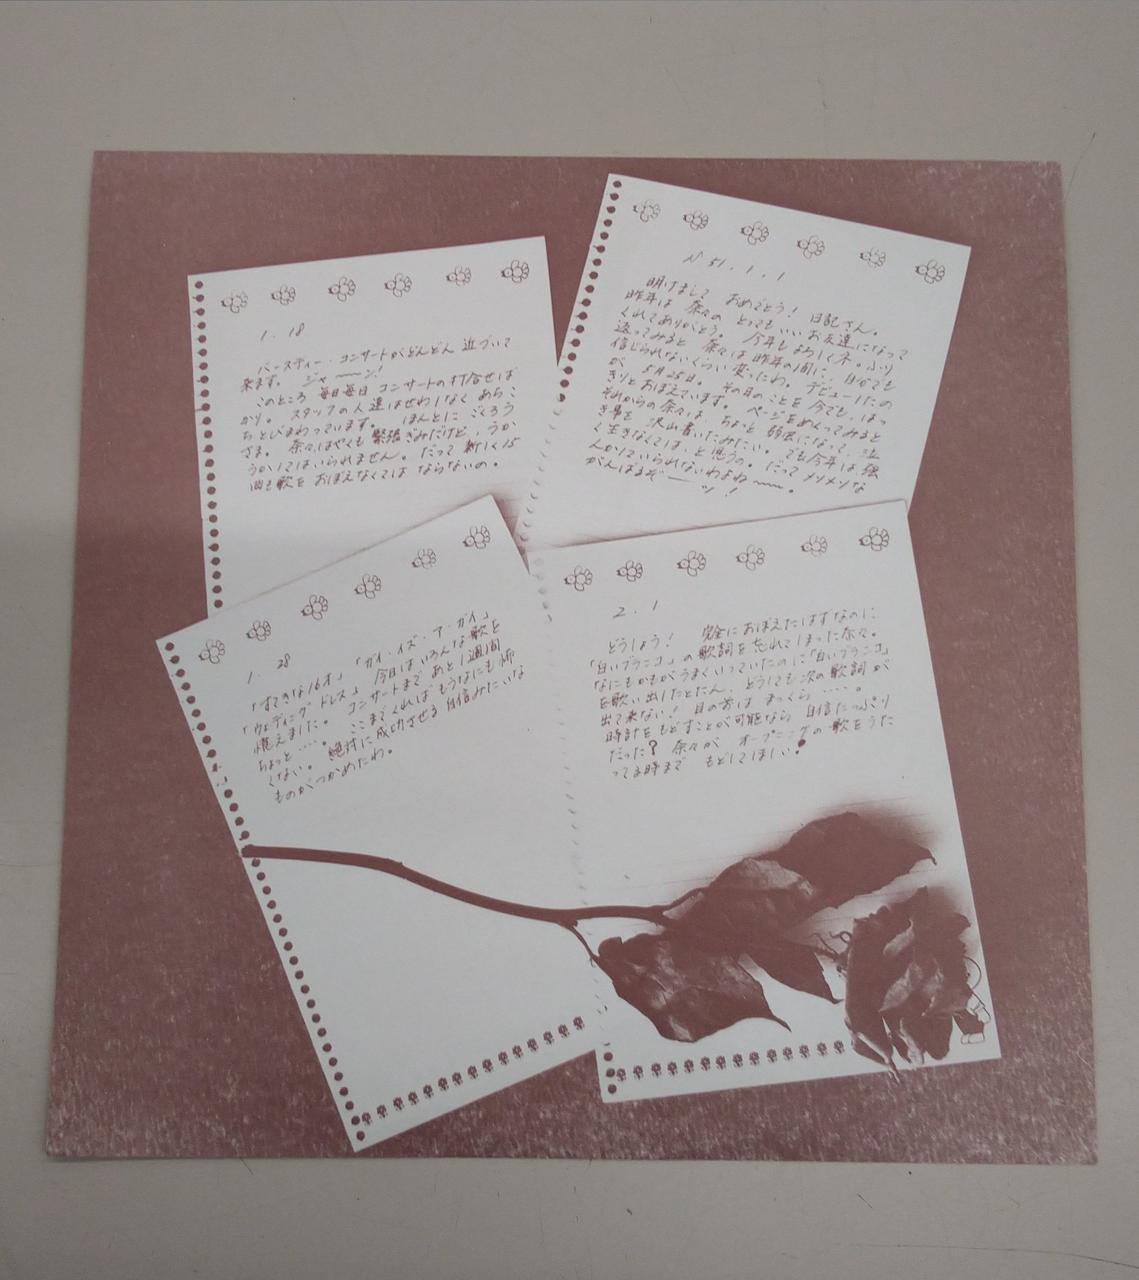 1.18
バースディー・コンサートがどんどん 近づいて
来ます。 ジャーーン!
このところ 毎日毎日 コンサートの打合せば
かり。 スタッフの人達はせわしなく あちこ
ちとびまわっています。 ほんとに ごくろう
さま。 奈々はやくも 緊張ぎみだけど、うか
うかしてはいられません。 だって 新しく15
曲も歌を おぼえなくては ならないの。
S 51.1.1
明けまして おめでとう! 日記さん。
昨年は 奈々の とってもいいお友達になって
くれてありがとう。 今年もよろしくネ。ふり
返ってみると 奈々は 昨年の1年間に、自分でも
信じられないくらい 変ったわ。 デビューしたの
が 5月25日。 その日のことを 今でも、はっ
きりとおぼえています。 ページをめくってみると
それからの奈々は、ちょっと 弱虫になって、泣
き事を 沢山書いたみたい。 でも今年は、強
く生きなくては、と思うの。 だって メソメソな
んかしていられないわよねーー。
がんばるぞーーッ!
1.28
「すてきな16才」 「ガイ・イズ・ア・ガイ」
「ウェディング・ドレス」 今日は いろんな歌を
憶えました。 コンサートまで あと1週間
ちょっと‥‥。 ここまでくれば もうなにも怖
くない。 絶対に成功させる 自信みたいな
ものがつかめたわ。
2.1
どうしよう! 完全におぼえたはずなのに
「白いブランコ」の歌詞を 忘れてしまった奈々。
なにもかもがうまくいっていたのに「白いブランコ」
を歌い出したとたん、どうしても次の歌詞が
出て来ない! 目の前は まっくら‥‥。
時計をもどすことが可能なら 自信たっぷり
だった? 奈々が オープニングの 歌をうた
ってる時まで もどしてほしい!